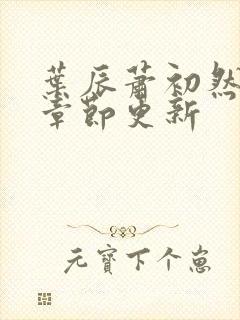 葉辰蕭初然
章節更新
元寶下个崽